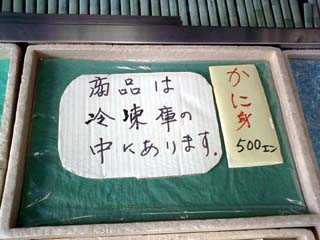 商品は
冷凍庫の
中にあります.
かに身
500エン